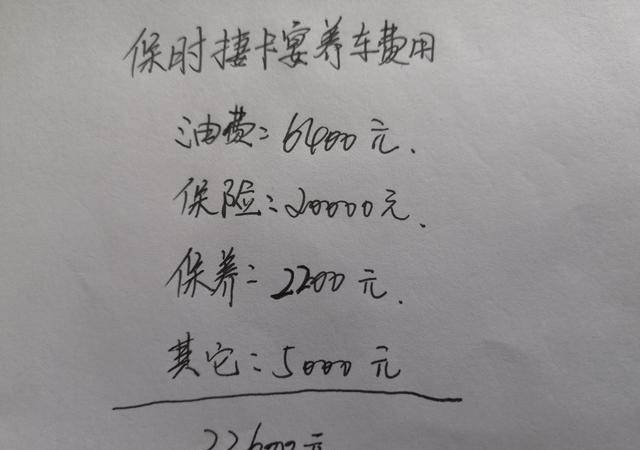 保时捷卡宴养车费用
油费：6400元.
保险：20000元.
保养：2200元.
其它：5000元
33600元